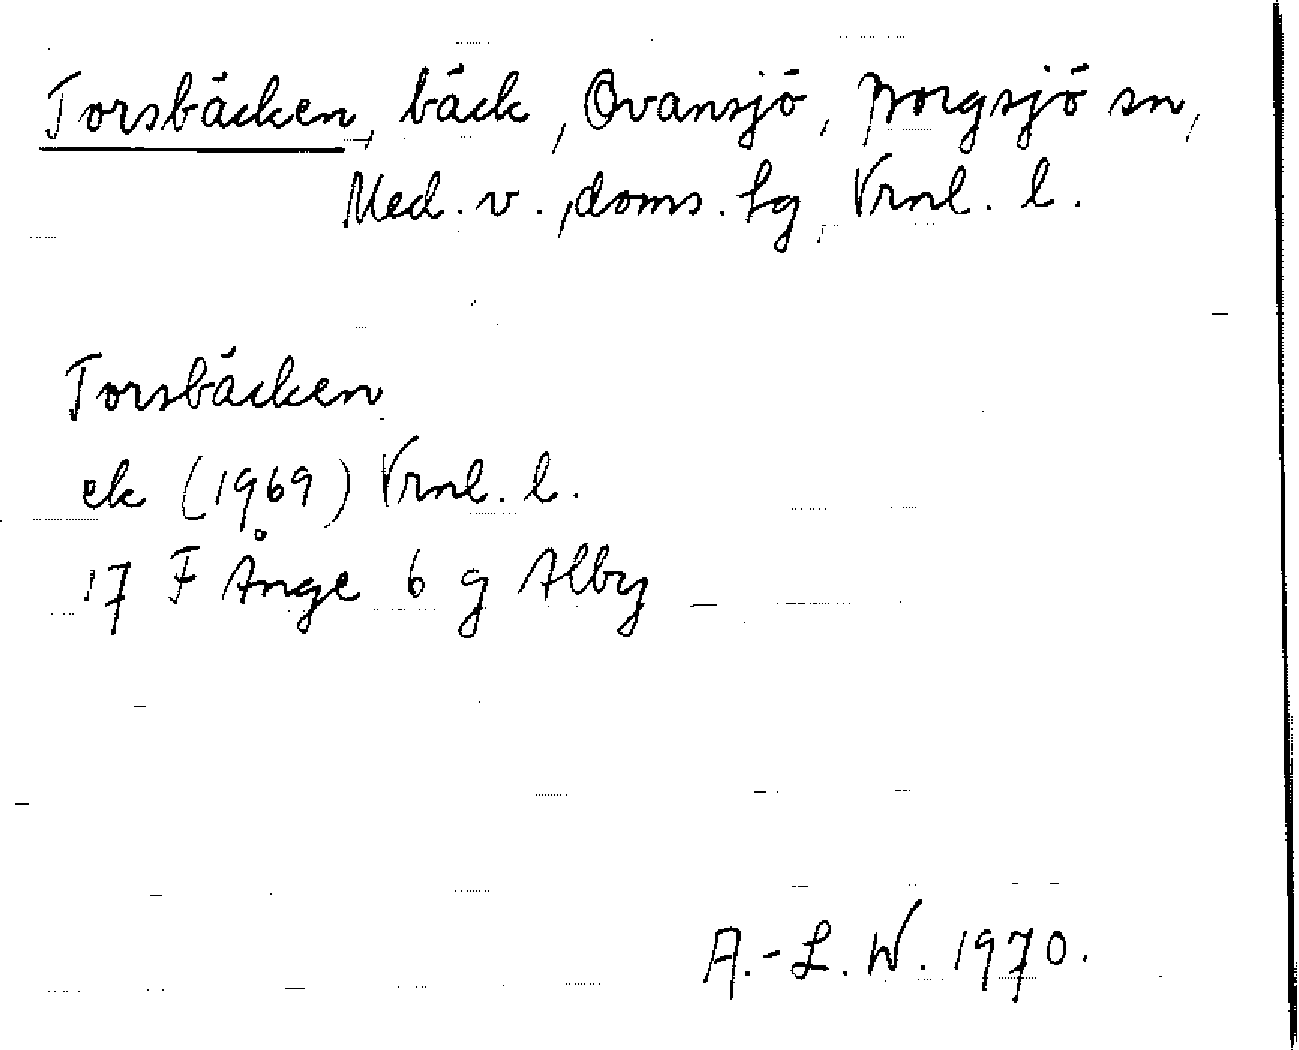 Torsbäcken, bäck, Ovansjö, Borgsjö sn,
Med. v., doms. hg, Vrnl. l.
Torsbäcken
ek (1969) Vrnl. l.
17 F Ånge 6 g Alby
A.-L. W. 1970.